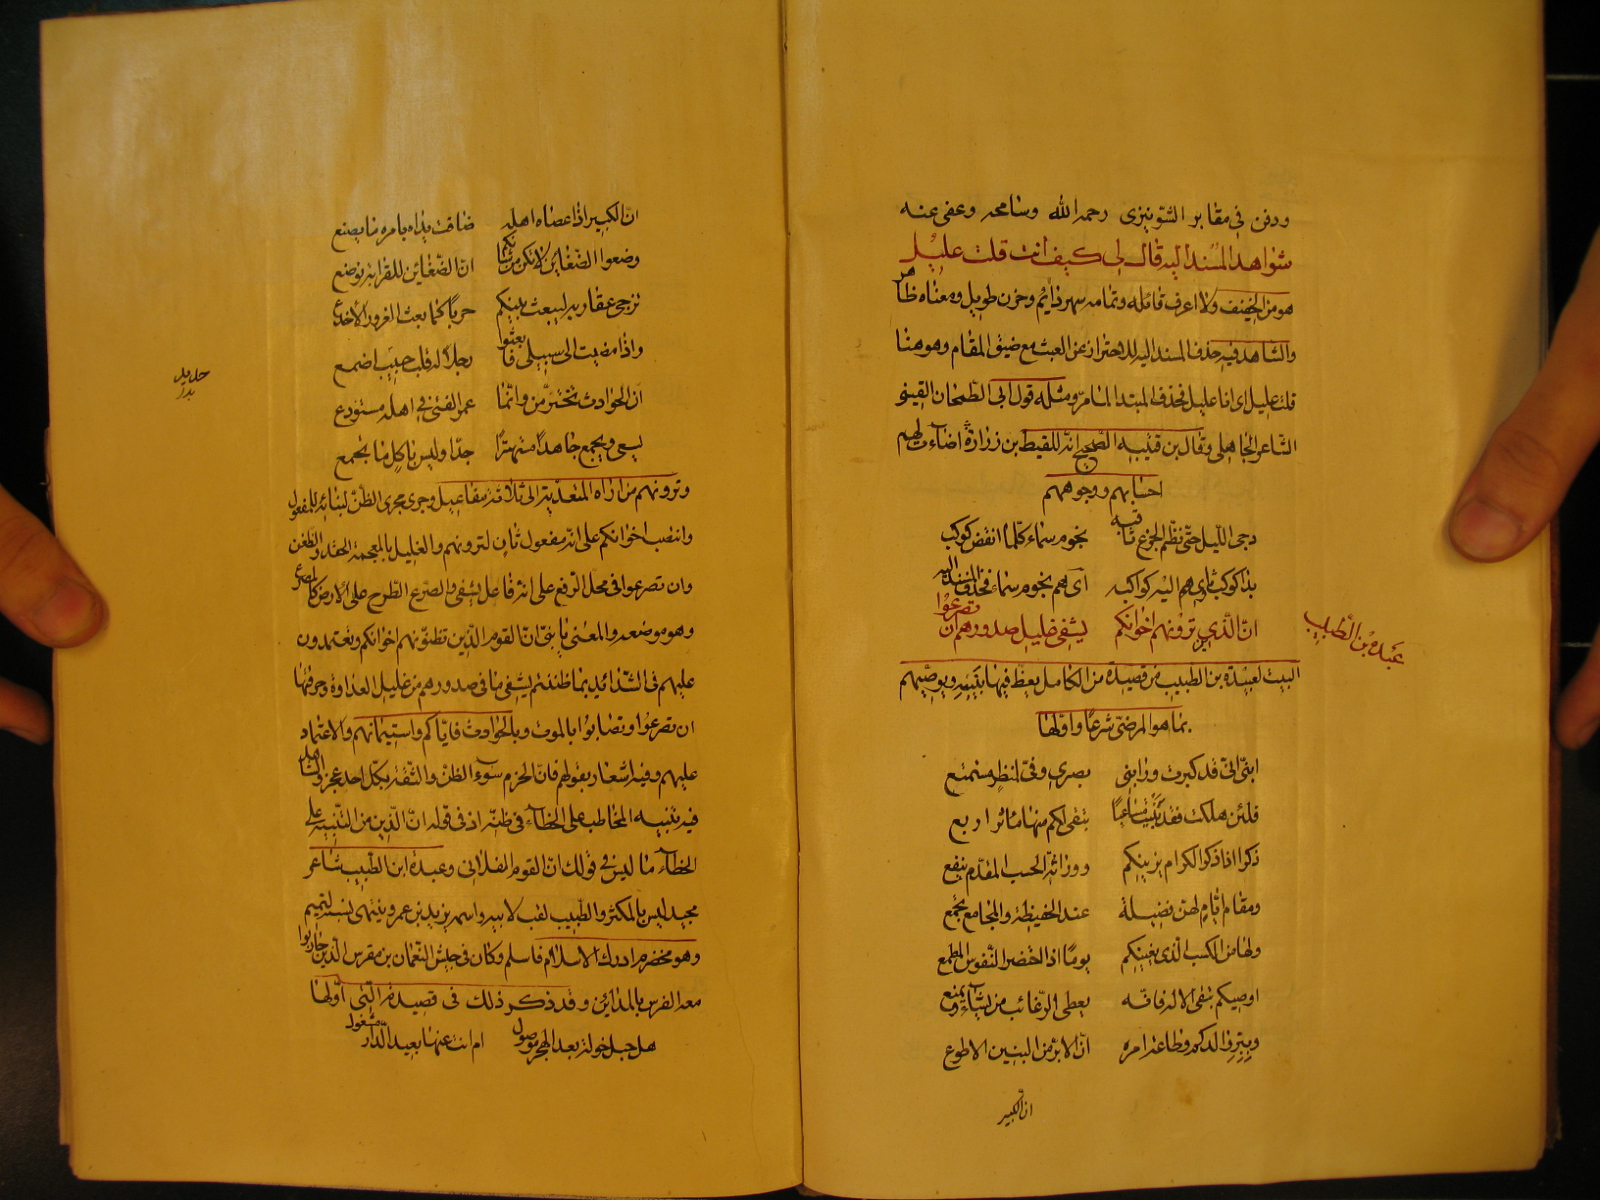 ودفن في مقابر الشونيزى رحمه الله وسامحه وعفى عنه
شواهد المسند اليه قال لى كيف انت قلت عليل
هو من الخفيف ولا اعرف قائله وتمامه سهر دائم وحزن طويل ومعناه ظاهر
والشاهد فيه حذف المسند اليه للاحتراز عن العبث مع ضيق المقام وهو هنا
قلت عليل اى انا عليل فحذف المبتدا لما مر ومثله قول ابى الطمحان القينى
الشاعر الجاهلى وقال بن قتيبه الصحيح انه للقيط بن زرارة اضاءت لهم
احسابهم ووجوههم
دجى الليل حتى نظم الجزع ثاقبه نجوم سماء كلما انقض كوكب
بدا كوكب تاوى اليه كواكبه اى هم نجوم سماء فحذف المسند اليه
عبدة بن الطبيب
ان الذين ترونهم اخوانكم يشفى غليل صدورهم ان تصرعوا
البيت لعبدة بن الطبيب من قصيدة من الكامل يعظ فيها بنيه ويوصيهم
بما هو المرضى شرعا واولها
ابنى انى قد كبرت ورابنى بصرى وفى لمنظر مستمتع
فلئن هلكت فقد بنيت مساعيا تبقى لكم منها مآثر اربع
ذكر اذا ذكر الكرام يزينكم ووراثة الحسب المقدم ينفع
ومقام ايام لهن فضيلة عند الحفيظة والمجامع تجمع
ولها من الكسب الذى يغنيكم يوما اذا احتضر النفوس المطمع
اوصيكم بتقى الاله فانه يعطى الرغائب من يشاء ويمنع
وببر والدكم وطاعة امره ان الابر من البنين الاطوع
ان الكبير
ان الكبير اذا عصاه اهله ضاقت يداه بامره ما يصنع
ودعوا الضغاين لا تكن من شانكم ان الضغائن للقرابة توضع
تزجى عقاربه ليبعث بينكم حربا كما بعث الغرور الاخدع
واذا مضيت الى سبيلى فابعثوا رجلا له قلب حبيب اصمع
ان الحوادث تخترمن وانما عمر الفتى فى اهله مستودع
يسعى ويجمع جاهدا مستهترا جدا وليس باكل ما يجمع
وترونهم من اراه المتعدية الى ثلاثة مفاعيل وجرى مجرى الظن لبنائه للمفعول
وانتصب اخوانكم على انه مفعول ثان لترونهم والغليل بالمعجمة الحقد والظغن
وان تصرعوا فى محل الرفع على انه فاعل يشفى والصرع الطرح على الارض كالمصرع
وهو موضعه والمعنى يا بنى ان القوم الذين تظنونهم اخوانكم وتعتمدون
عليهم فى الشدائد بما ظننتم يشفى ما فى صدورهم من غليل العداوة وحرقتها
ان تصرعوا وتصابوا بالموت وبالحوادث فاياكم واستيمانهم والاعتماد
عليهم وفيه اشعار بقولهم فان الحزم سوء الظن والثقة بكل احد عجز والشاهد
فيه تنبيه المخاطب على الخطاء فى ظنه اذ فى قوله ان الذين من التنبيه على
الخطاء ما ليس فى قولك ان القوم الفلانى وعبدة ابن الطبيب شاعر
مجيد ليس بالمكثر والطبيب لقب لابيه واسمه يزيد بن عمرو ينتهى نسبه لتميم
وهو مخضرم ادرك الاسلام فاسلم وكان فى جيش النعمان بن مقرس الذين حاربوا
معه الفرس بالمداين وقد ذكر ذلك فى قصيدته التى اولها
هل حبل خولة بعد الهجر موصول ام انت عنها بعيد الدار مشغول